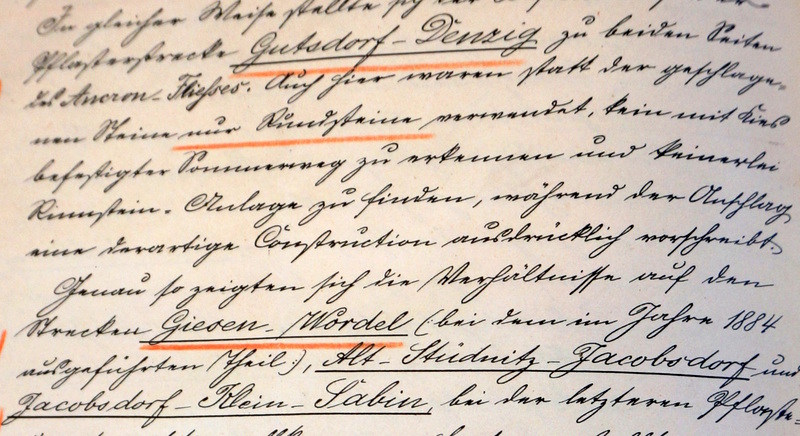 In gleicher Weise stellte sich der
Pflasterstrecke Gutsdorf-Denzig zu beiden Seiten
des Ancron-Fließes. Auch hier waren statt der geschlage-
nen Steine nur Rundsteine verwendet, kein mit Kies
befestigter Sommerweg zu erkennen und keinerlei
Rinnstein-Anlage zu finden, während der Anschlag
eine derartige Construction ausdrücklich vorschreibt.
Genau so zeigten sich die Verhältnisse auf den
Strecken Giesen-Wordel (:bei dem im Jahre 1884
ausgeführten Theil:), Alt-Stüdnitz-Jacobsdorf und
Jacobsdorf-Klein-Sabin, bei der letzteren Pflaste-